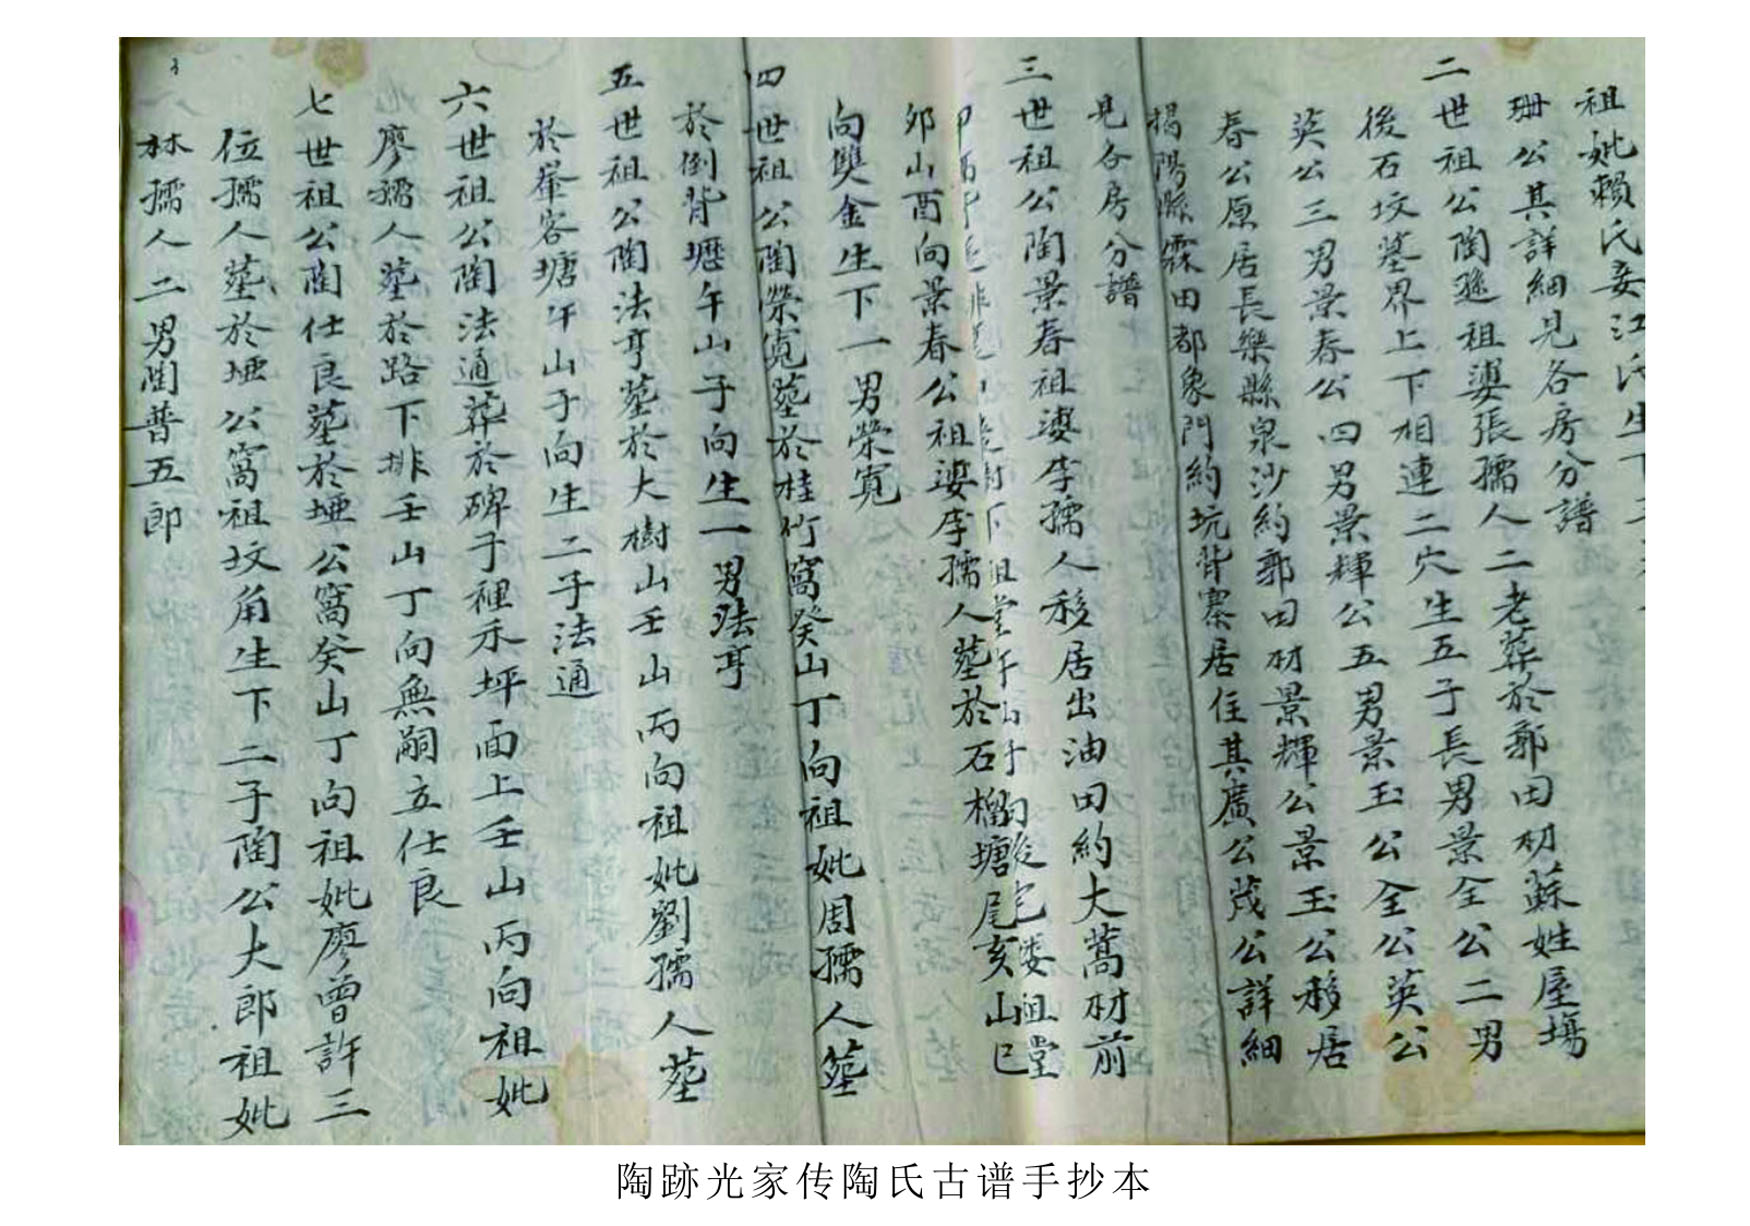 祖妣賴氏妾江氏生下
珊公其詳細見各房分譜
二世祖公陶遜祖婆張孺人二老葬於郭田村蘇姓屋場
後石坟墓界上下相連二穴生五子長男景全公二男
英公三男景春公四男景輝公五男景玉公全公英公
春公原居長樂縣泉沙約郭田村景輝公景玉公移居
揭陽縣霖田都象門約坑背寨居住其廣公茂公詳細
見各房分譜
三世祖公陶景春祖婆李孺人移居出油田約大蒿村前
下祖堂午山子向後宅婆祖堂
卯山酉向景春公祖婆李孺人墓於石榴塘尾亥山巳
向雙金生下一男榮寬
四世祖公陶榮寬墓於桂竹窩癸山丁向祖妣周孺人墓
於倒背壢午山子向生一男法亨
五世祖公陶法亨墓於大樹山壬山丙向祖妣劉孺人墓
於峯客塘午山子向生二子法通
六世祖公陶法通葬於碑子裡禾坪面上壬山丙向祖妣
廖孺人墓於路下排壬山丁向無嗣立仕良
七世祖公陶仕良墓於埡公窩癸山丁向祖妣廖曾許三
位孺人墓於埡公窩祖坟角生下二子陶公大郎祖妣
林孺人二男陶普五郎
陶跡光家传陶氏古谱手抄本